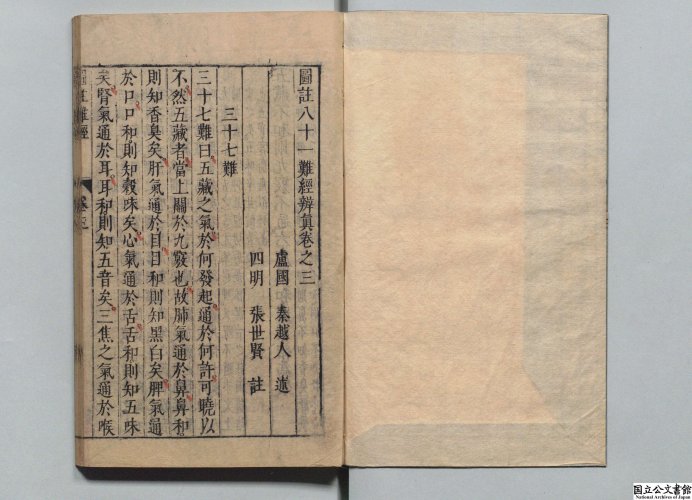 圖註八十一難經辨真卷之三
盧國 秦越人 述
四明 張世賢 註
三十七難
三十七難曰五藏之氣於何發起通於何許可曉以
不然五藏者當上關於九竅也故肺氣通於鼻鼻和
則知香臭矣肝氣通於目目和則知黑白矣脾氣通
於口口和則知穀味矣心氣通於舌舌和則知五味
矣腎氣通於耳耳和則知五音矣三焦之氣通於喉
圖註難經
卷之三
国立公文書館
National Archives of Japan